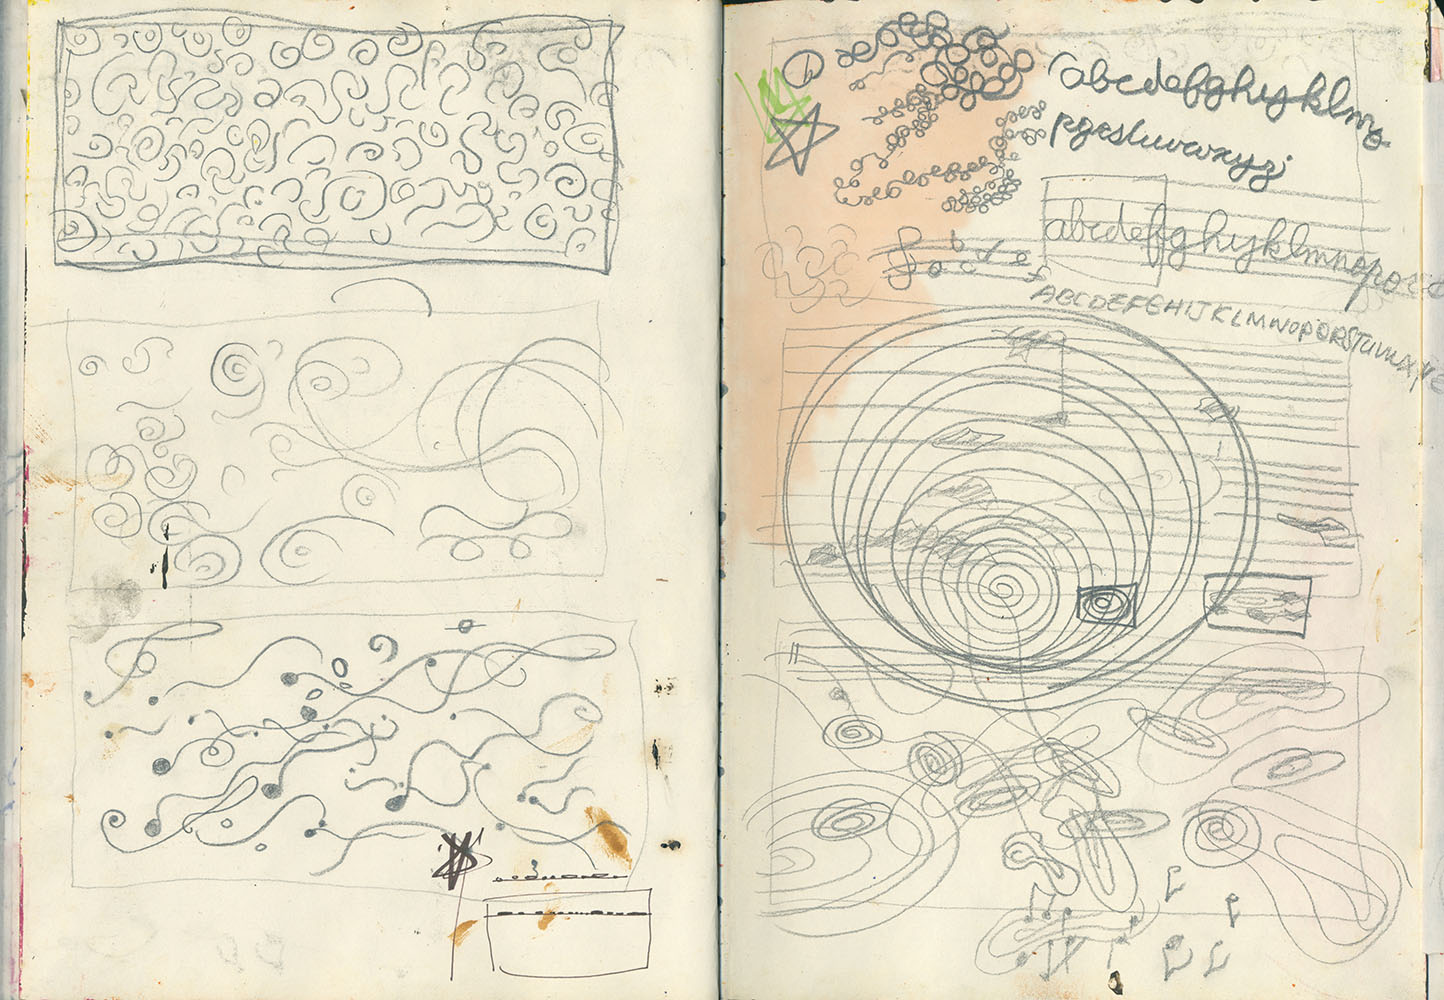 abcdefghijklmo
pqrstuvwxyz
abcdefghijklmnopqrs
abcdef
ABCDEFGHIJKLMNOPQRSTUVWXYZ